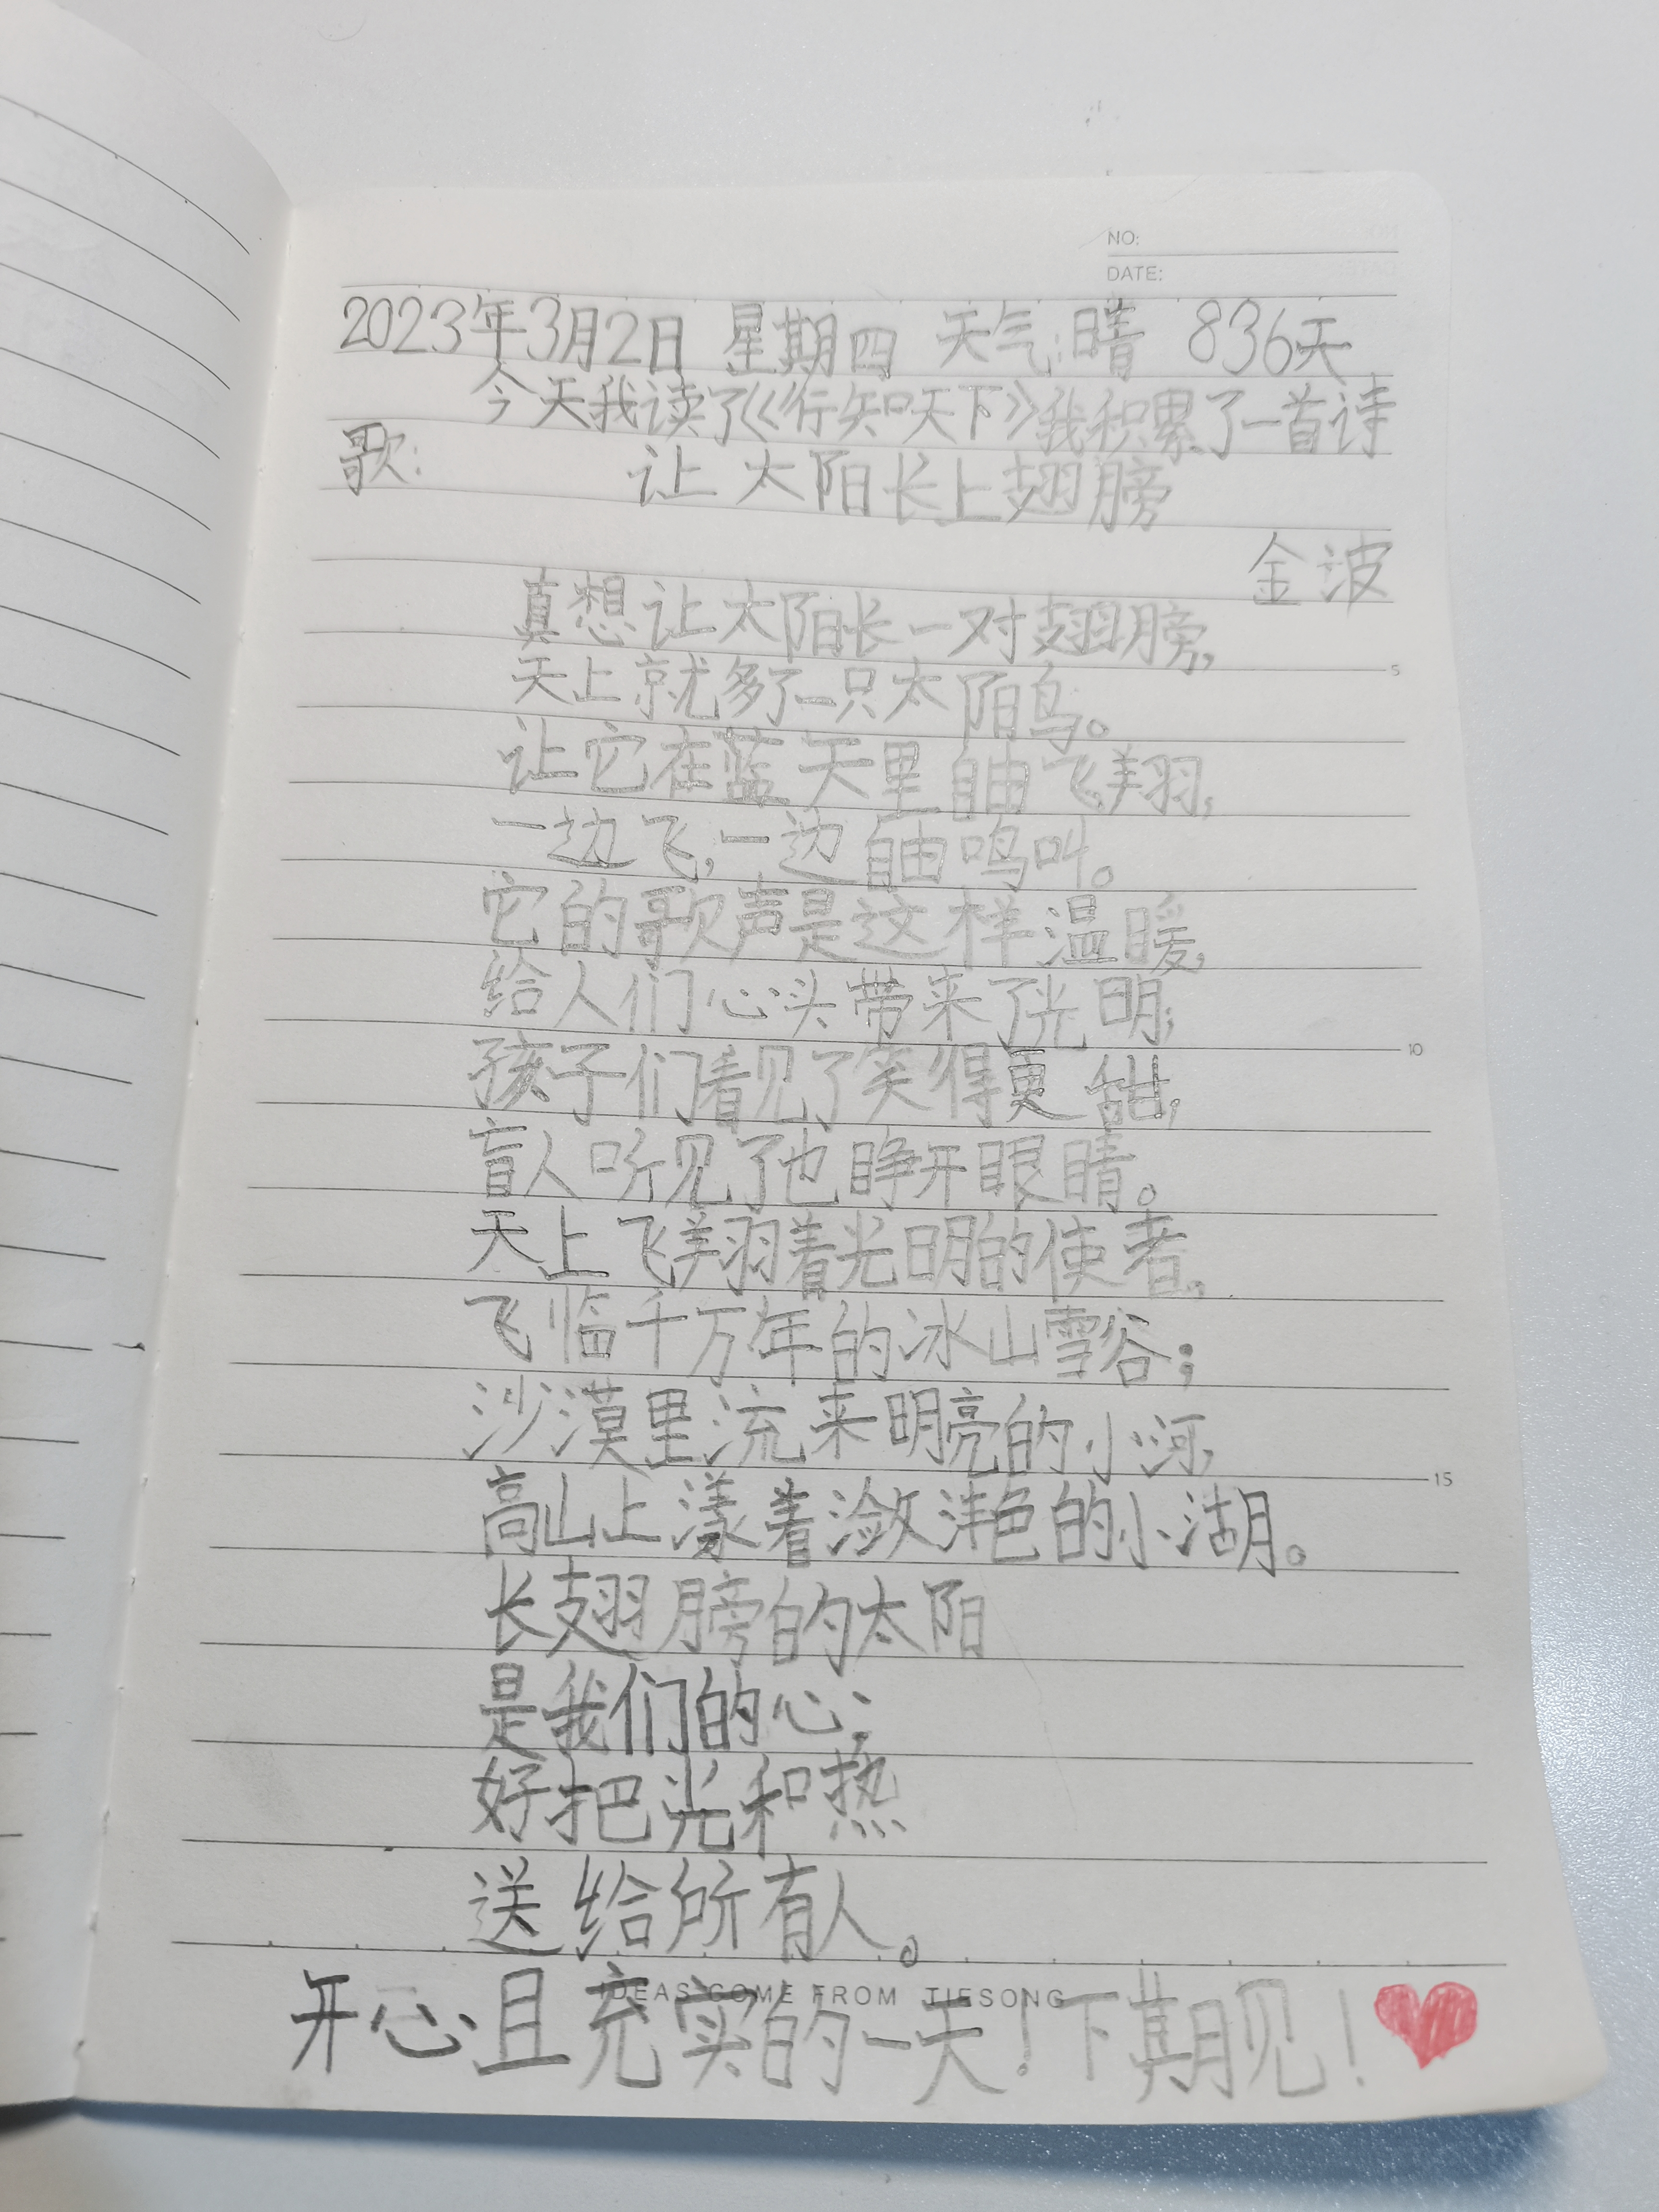 NO:
DATE:
2023年3月2日 星期四 天气:晴 836天
今天我读了《行知天下》我积累了一首诗
歌:
让太阳长上翅膀
金波
真想让太阳长一对翅膀,
天上就多了一只太阳鸟。
让它在蓝天里自由飞翔,
一边飞,一边自由鸣叫。
它的歌声是这样温暖,
给人们心头带来了光明;
孩子们看见了笑得更甜,
盲人听见了也睁开眼睛。
天上飞翔着光明的使者,
飞临千万年的冰山雪谷;
沙漠里流来明亮的小河,
高山上漾着潋滟的小湖。
长翅膀的太阳
是我们的心;
好把光和热
送给所有人。
IDEAS COME FROM TIESONG
开心且充实的一天!下期见!
5
10
15